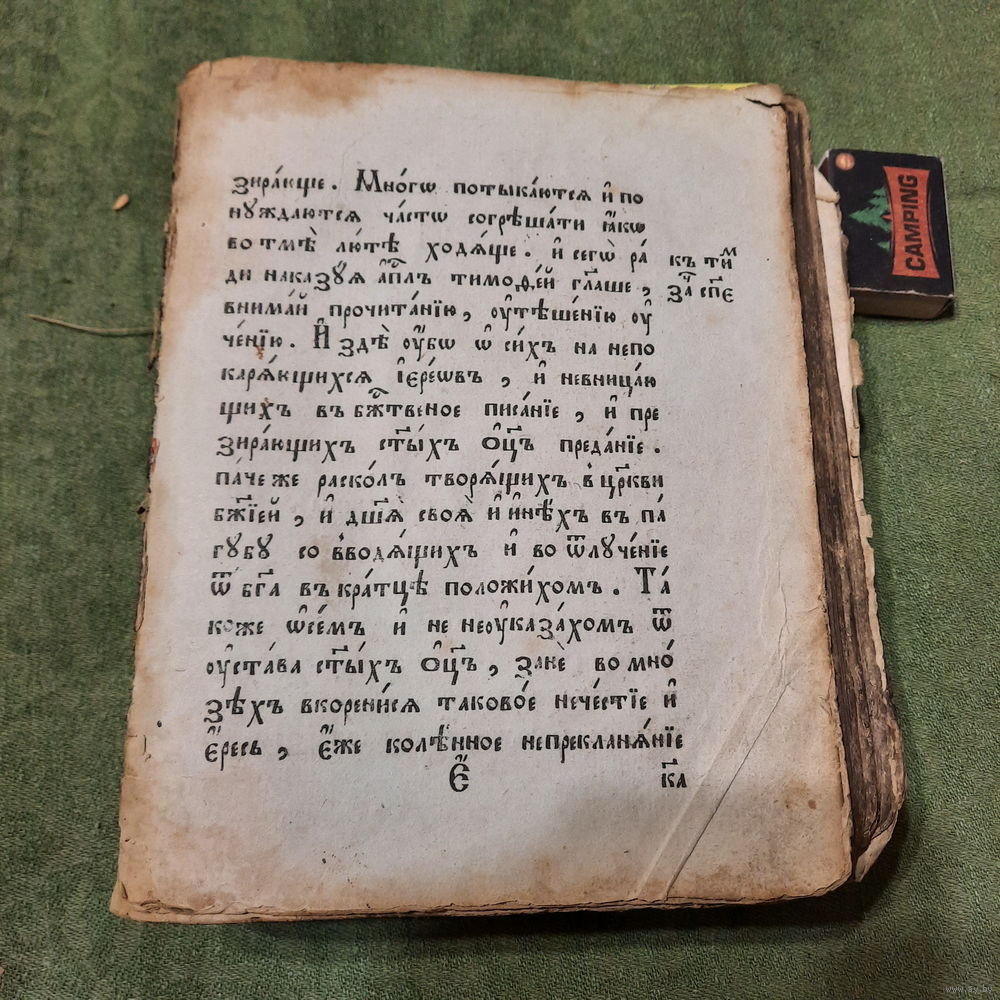 зира́юще. Мно́гѡ потыка́ются и҆ по
нꙋждаются ча́стѡ согрѣша́ти ꙗ҆́кѡ
во тмѣ̀ лю́тѣ ходѧ́ще. и҆ сегѡ̀ ра́
ди наказꙋ́ѧ а҆пⷭ҇лъ тимоѳе́й гл҃аше,
къ тиⷨ
за҄ спе
внима́й прочита́нїю, ᲂу҆тѣше́нїю ᲂу҆
че́нїю. И҆ здѣ̀ ᲂу҆́бѡ ѡ҆ си́хъ на непо
карѧ́ющихсѧ і҆ере́ѡвъ, и҆ невница́ю
щихъ въ бжⷭ҇твеное писа́нїе, и҆ пре
зира́ющихъ ст҃ы́хъ ѻ҆ц҃ъ преда́нїе.
па́че же раско́лъ творѧ́щихъ в҆ цр҃кви
бж҃їей, и҆ дш҃ѧ̀ своѧ̀ и҆ и҆нѣ́хъ въ па́
гꙋбꙋ со в҆водѧ́щихъ и҆ во ѿлꙋче́нїе
ѿ бг҃а въ кра́тцѣ положи́хомъ. Та́
коже ѡ҆ се́мъ и҆ не неᲂуказа́хомъ ѿ
ᲂу҆ста́ва ст҃ы́хъ ѻ҆ц҃ъ, занѐ во мно́
зѣхъ вкорени́сѧ таково́е нече́стїе и҆
є҆́ресь, є҆́же колѣ́нное непрекланѧ́нїе
є҃
ка
CAMPING
www.ay.by